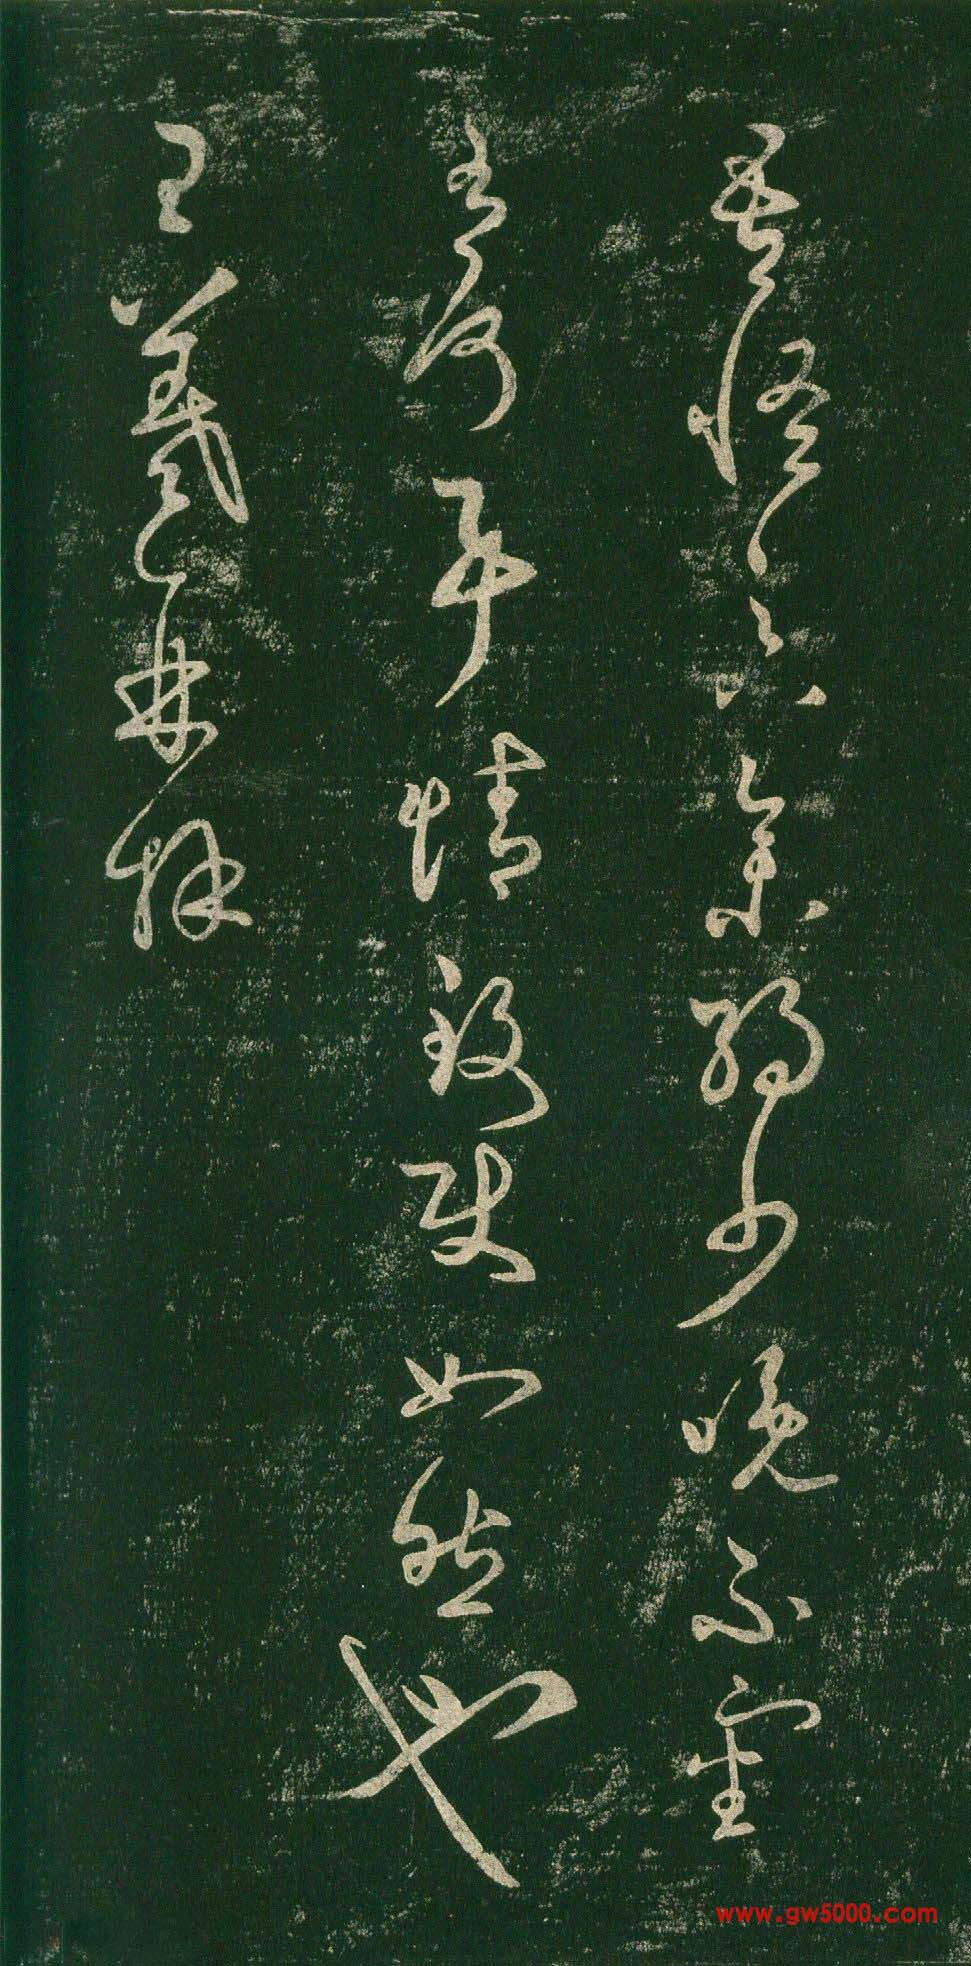 吾怪足下參朝少晚不審
有何事情致使如然也
王羲之再拜
www.gw5000.com